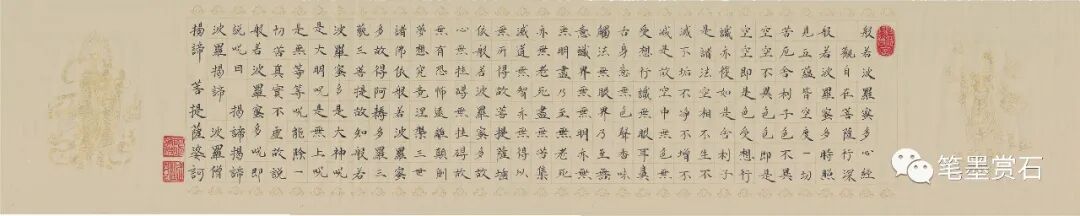 般若波羅蜜多心經
觀自在菩薩行深
般若波羅蜜多時照
見五蘊皆空度一切
苦厄舍利子色不異
空空不異色色即是
空空即是色受想行
識亦復如是舍利子
是諸法空相不生不
滅不垢不淨不增不
減是故空中無色無
受想行識無眼耳鼻
舌身意無色聲香味
觸法無眼界乃至無
意識界無無明亦無
無明盡乃至無老死
亦無老死盡無苦集
滅道無智亦無得以
無所得故菩提薩埵
依般若波羅蜜多故
心無挂礙無挂礙故
無有恐怖遠離顛倒
夢想究竟涅槃三世
諸佛依般若波羅蜜
多故得阿耨多羅三
藐三菩提故知般若
波羅蜜多是大神呪
是大明呪是無上呪
是無等等呪能除一
切苦真實不虛故說
般若波羅蜜多呪即
說呪曰 揭諦揭諦
波羅揭諦 波羅僧
揭諦 菩提薩婆訶
笔墨赏石